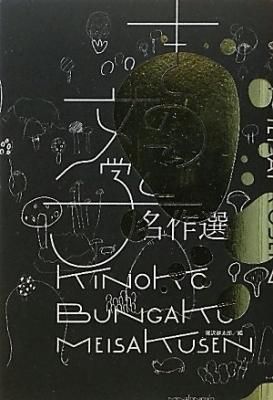 きのこ
文学
名作選
KINOKO
BUNGAKU
MEISAKUSEN
飯沢耕太郎／編